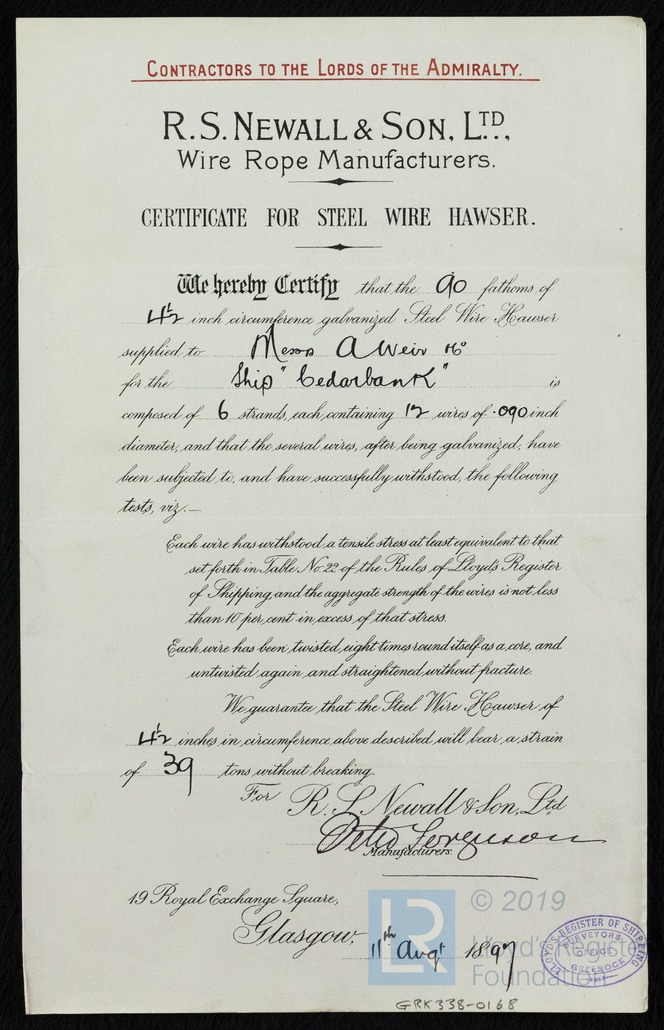 CONTRACTORS TO THE LORDS OF THE ADMIRALTY.
R.S. NEWALL & SON, LTD.,
Wire Rope Manufacturers.
CERTIFICATE FOR STEEL WIRE HAWSER.
We hereby Certify that the 90 fathoms of
4½ inch circumference galvanized Steel Wire Hawser
supplied to Messrs A Weir & Co
for the Ship "Cedarbank" is
composed of 6 strands, each containing 12 wires of .090 inch
diameter, and that the several wires, after being galvanized, have
been subjected to, and have successfully withstood, the following
tests, viz.—
Each wire has withstood a tensile stress at least equivalent to that
set forth in Table No. 22 of the Rules of Lloyd's Register
of Shipping, and the aggregate strength of the wires is not less
than 10 per cent in excess of that stress.
Each wire has been twisted eight times round itself as a core, and
untwisted again and straightened without fracture.
We guarantee that the Steel Wire Hawser of
4½ inches in circumference above described will bear a strain
of 39 tons without breaking.
For R. S. Newall & Son, Ltd
Peter Ferguson
Manufacturers.
19 Royal Exchange Square,
Glasgow, 11th Augt 1897
LR © 2019
Lloyd's Register
Foundation
LLOYD'S REGISTER OF SHIPPING
SURVEYORS
OFFICE
GREENOCK
GRK338-0168